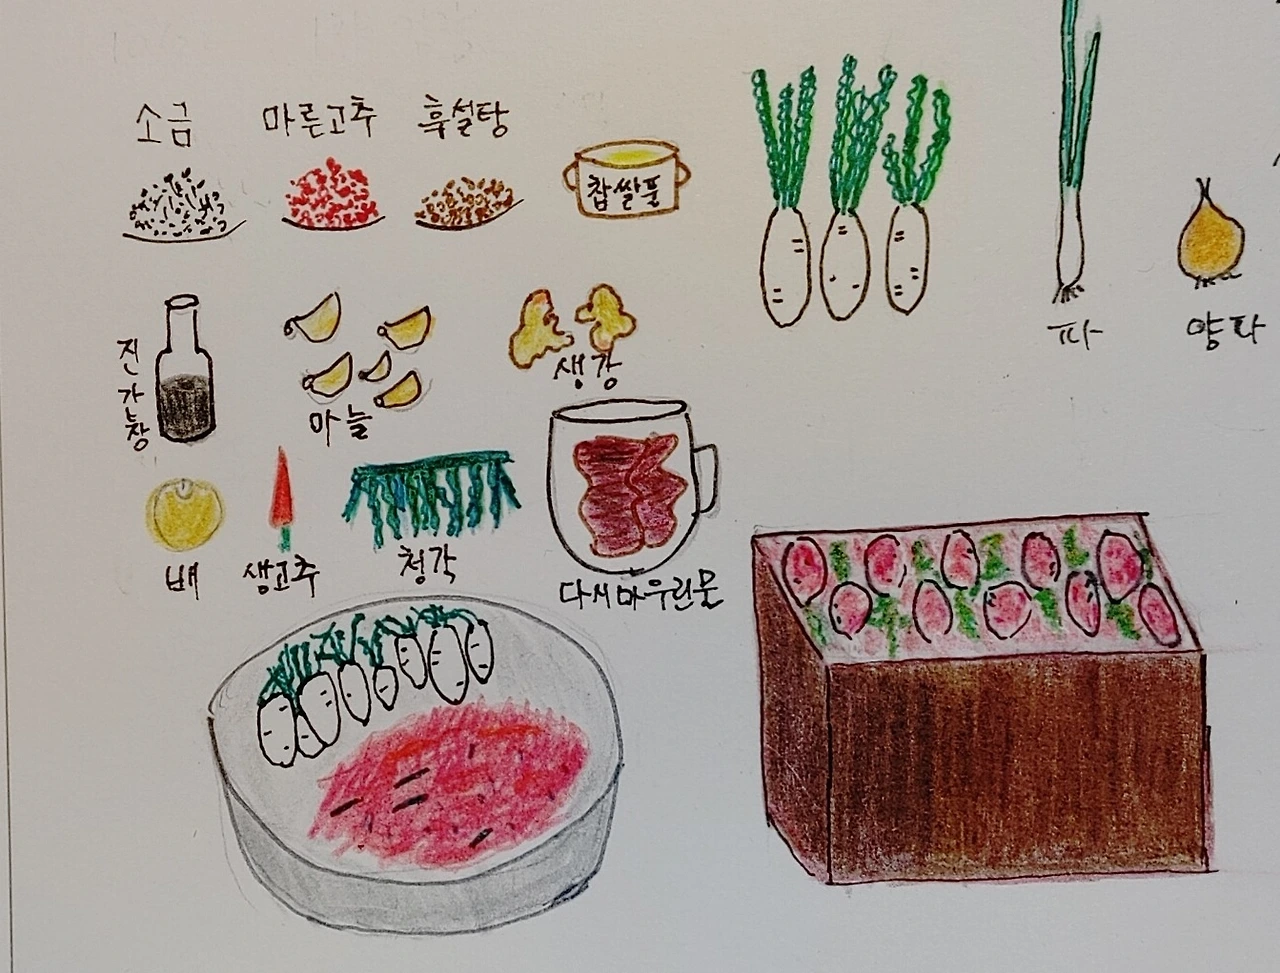 소금
마른고추
흑설탕
찹쌀풀
파
양파
진
마늘
생강
배
생고추
청각
다시마우린물